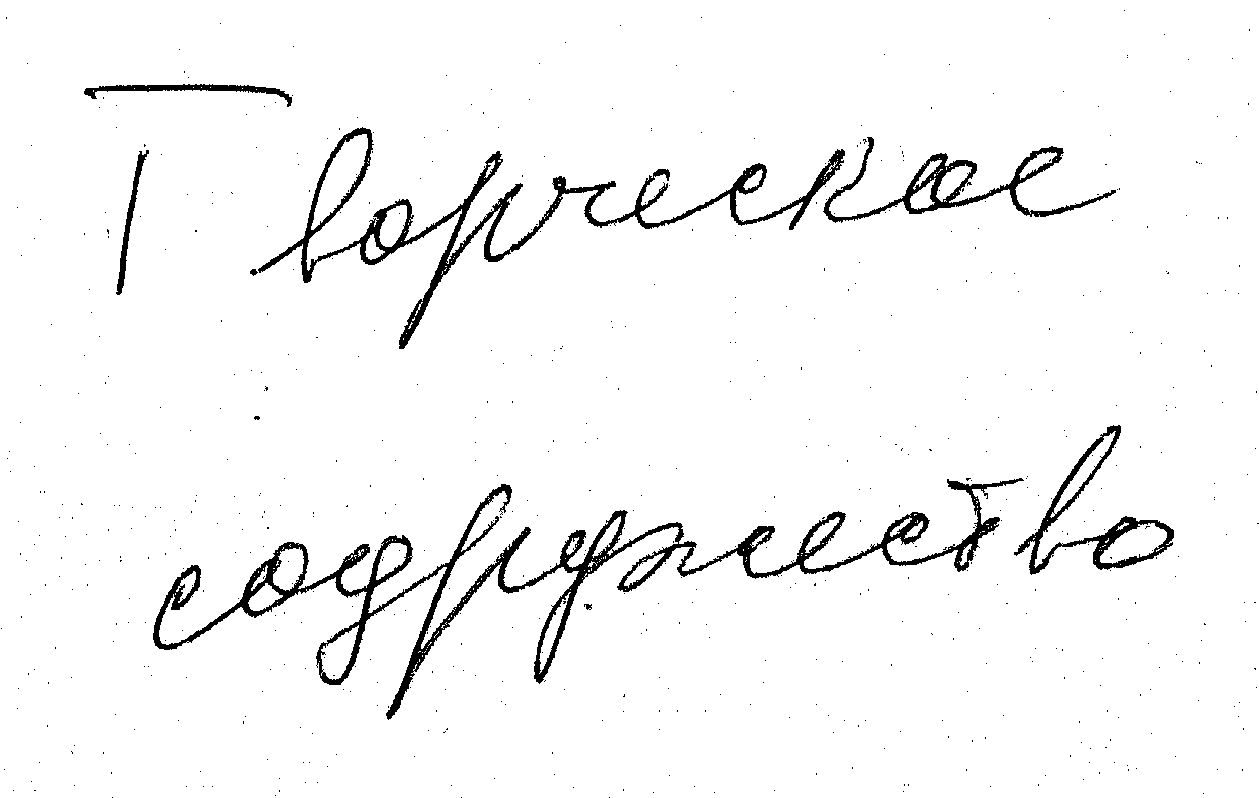 Творческое
содружество